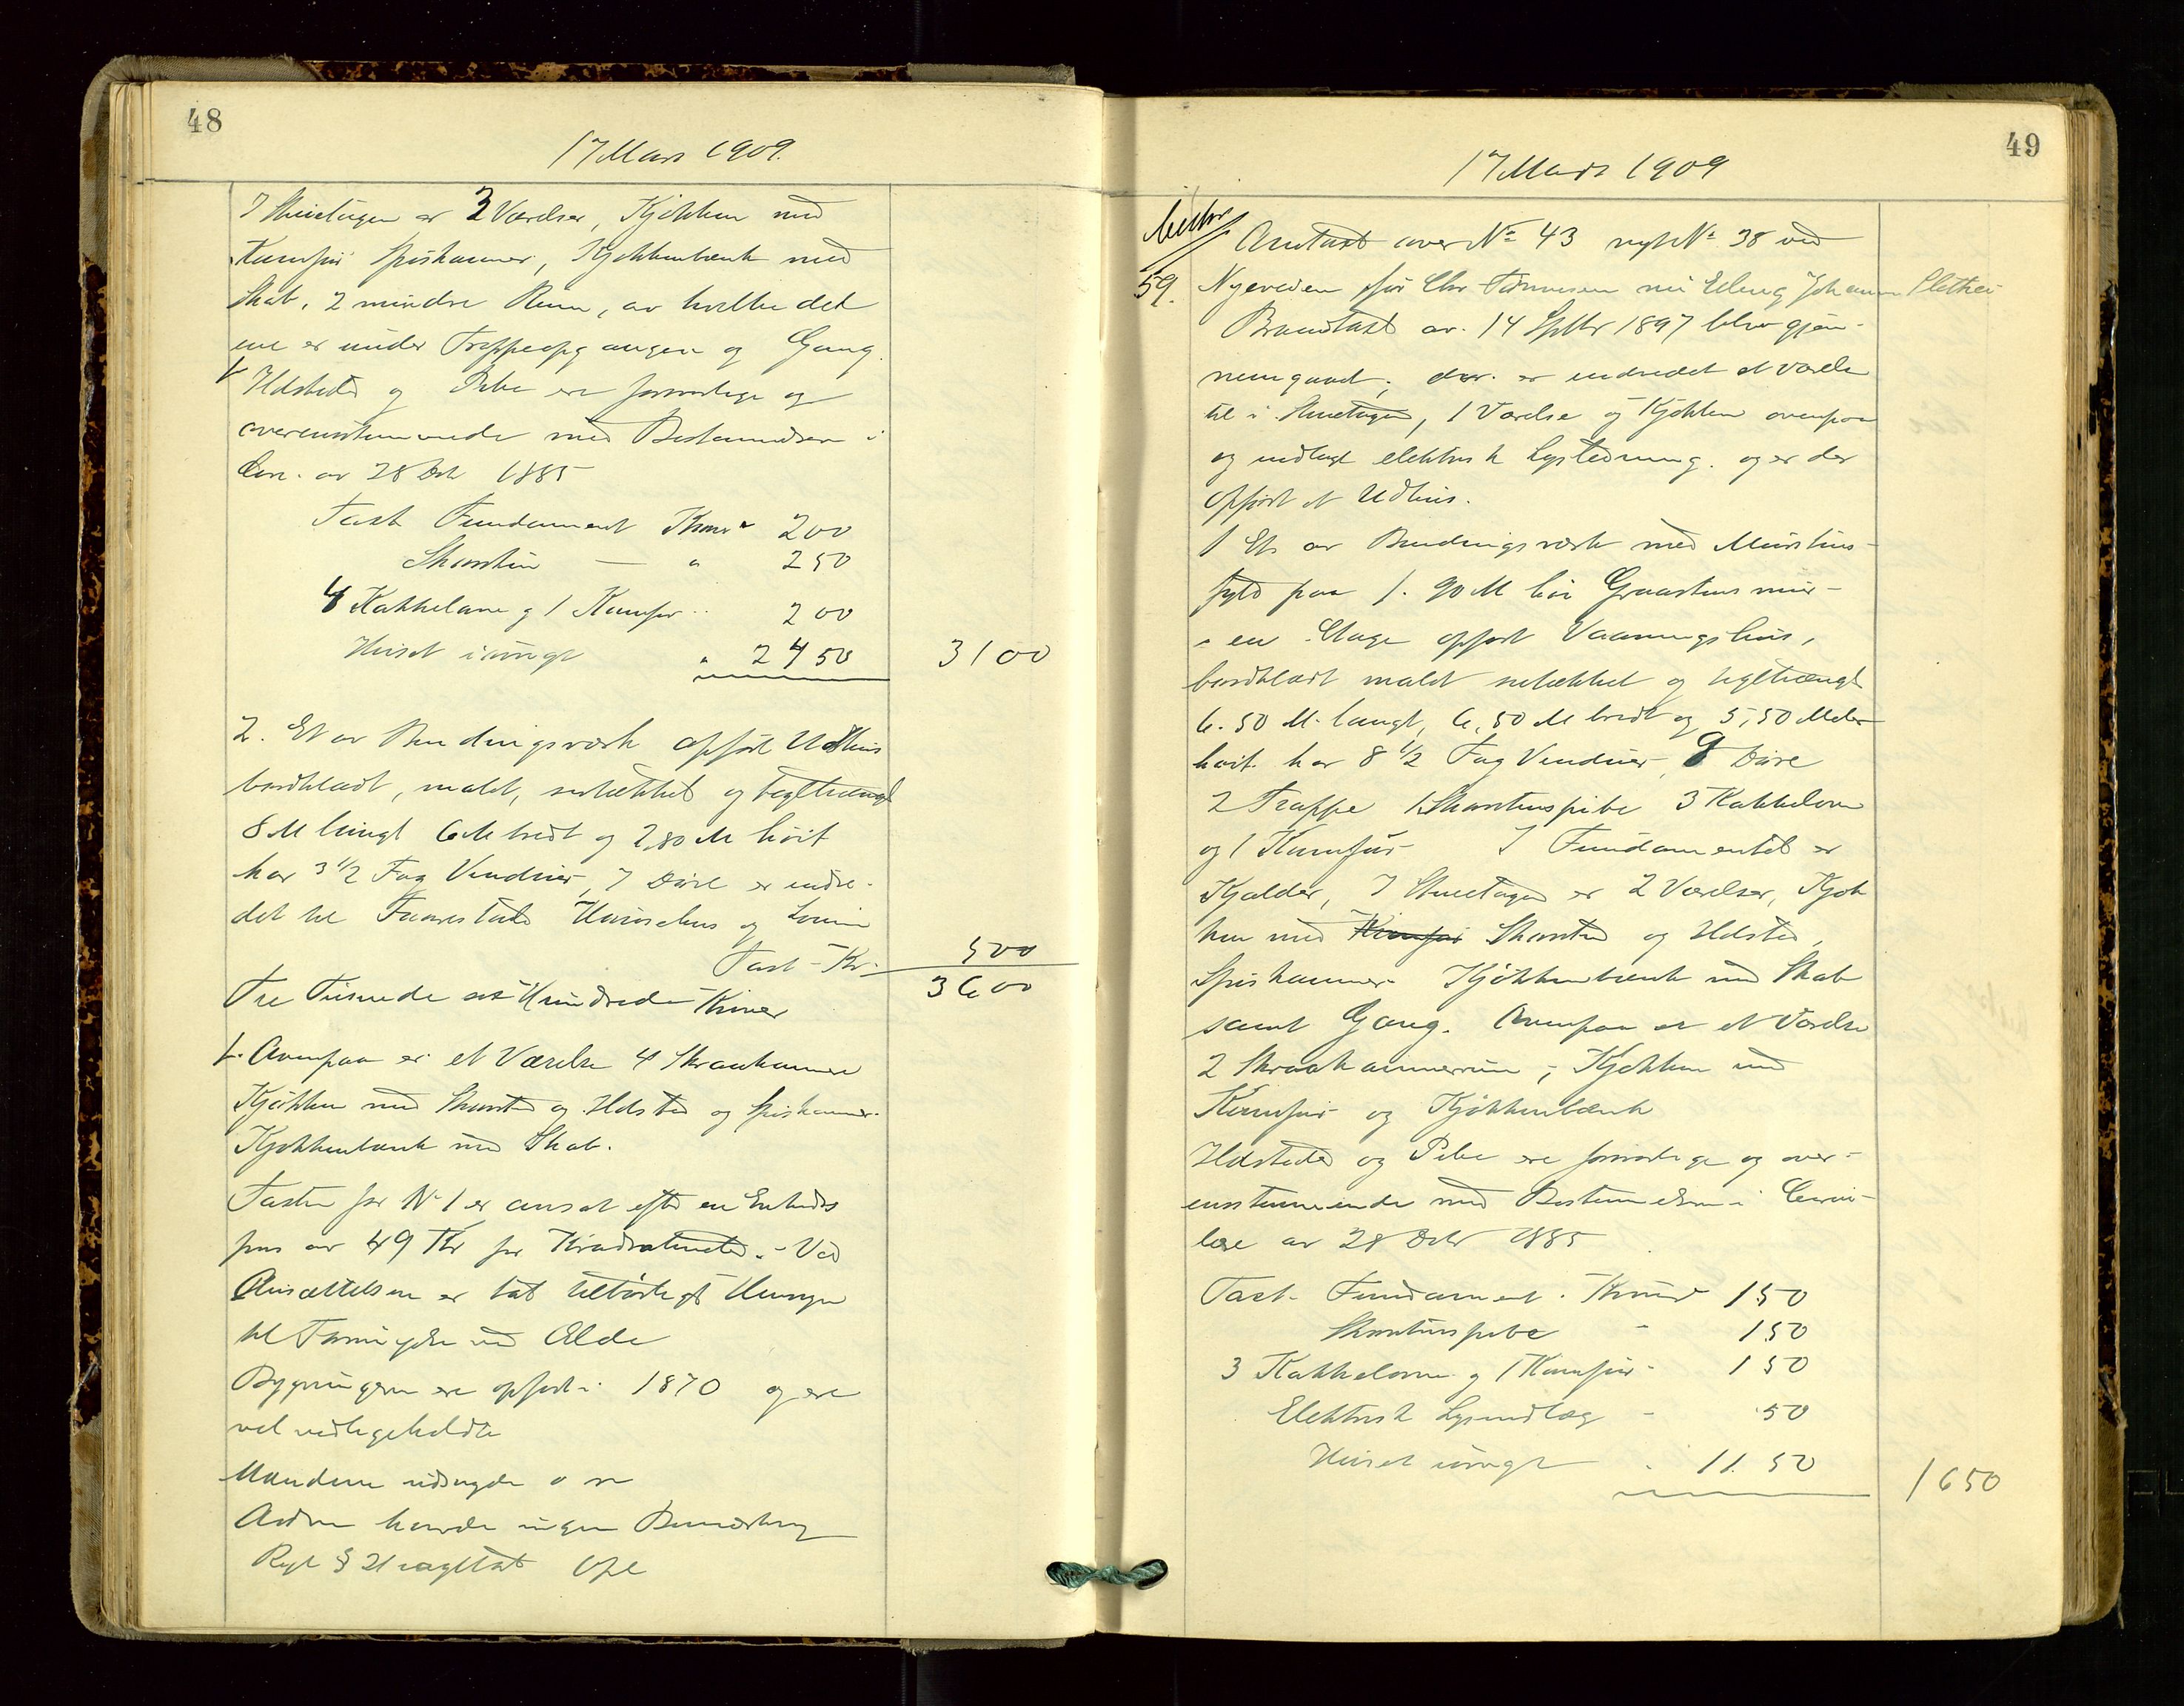 48
17 Mars 1909.
I Stueetagen er 3 Værelser, Kjøkken med
Kumfur Spiskammer, Kjøkkenbænk med
Skab, 2 mindre Rum, av hvilke det
ene er under Trappeopgangen og Gang.
Ildsteder og Pibe ere forsvarlige og
overensstemmende med Bestemmelsen i
Circ. av 28 Octr 1885
Taxt Fundament Kroner 200
Skorsten — " 250
4 Kakkelovne og 1 Kumfur " 200
Huset iøvrigt " 2450 3100
2. Et av Bindingsværk opført Udhus
bordklædt, malt, sutækket og tegltrængt
8 M langt 6 M bredt og 2,80 M høit
har 3 1/2 Fag Vinduer, 7 Døre er indre-
det til Faarestald Hønsehus og
Taxt - Kr. 500
Tre Tusende sex Hundrede Kroner 3600
1. Ovenpaa er et Værelse 4 Skraakammere
Kjøkken med Skorsten og Ildsted og Spiskammer.
Kjøkkenbænk med Skab.
Taxten for No 1 er ansat efter en Enheds
pris av 49 Kr pr Kvadratmeter. - Ved
Ansættelsen er tat tilbørligt Hensyn
til Forringelse ved Ælde
Bygningerne ere opført i 1870 og ere
vel vedligeholdte
Mændene udsagde o sv
Andre havde ingen Bemærkning
Regl § 21 iagttat Opl
49
17 Mars 1909
59.
Omtaxt over No 43 nyt No 38 ved
Nyeveien før Chr Tønnesen nu Elling Johannes Slettei
Brandtaxt av 14 Septbr 1897 blev gjen-
nemgaaet, der er indredet et Værelse
til i Stueetagen, 1 Værelse og Kjøkken ovenpaa
og indlagt elektrisk Lysledning og er der
opført et Udhus.
1 Et av Bindingsværk med Murstens-
fyld paa 1.90 M høi Graastensmur-
i en Etage opført Vaaningshus,
bordklædt malet sutækket og tegltrængt
6.50 M. langt, 6,50 M bredt og 5,50 Meter
høit har 8 1/2 Fag Vinduer, 9 Døre
2 Trappe 1 Skorstenspibe 3 Kakkelovne
og 1 Kumfur I Fundamentet er
Kjælder, I Stueetagen er 2 Værelser, Kjøk
ken med Kumfur Skorsten og Ildsted,
Spiskammer Kjøkkenbænk med Skab
samt Gang. Ovenpaa er et Værelse
2 Skraakammerrum, Kjøkken med
Kumfur og Kjøkkenbænk
Ildsteder og Pibe ere forsvarlige og over-
ensstemmende med Bestemmelsen i Circu-
lære av 28 Octr 1885
Taxt Fundament Kroner 150
Skorstenspibe " 150
3 Kakkelovne og 1 Kumfur " 150
Elektrisk Lysindlæg " 50
Huset iøvrigt " 11.50 1650